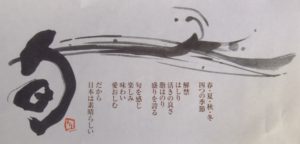 旬
春・夏・秋・冬
四つの季節
解禁
はしり
活きの良さ
脂はのり
盛りを誇る
旬を感じ
楽しみ
味わい
愛おしむ
だから
日本は素晴らしい